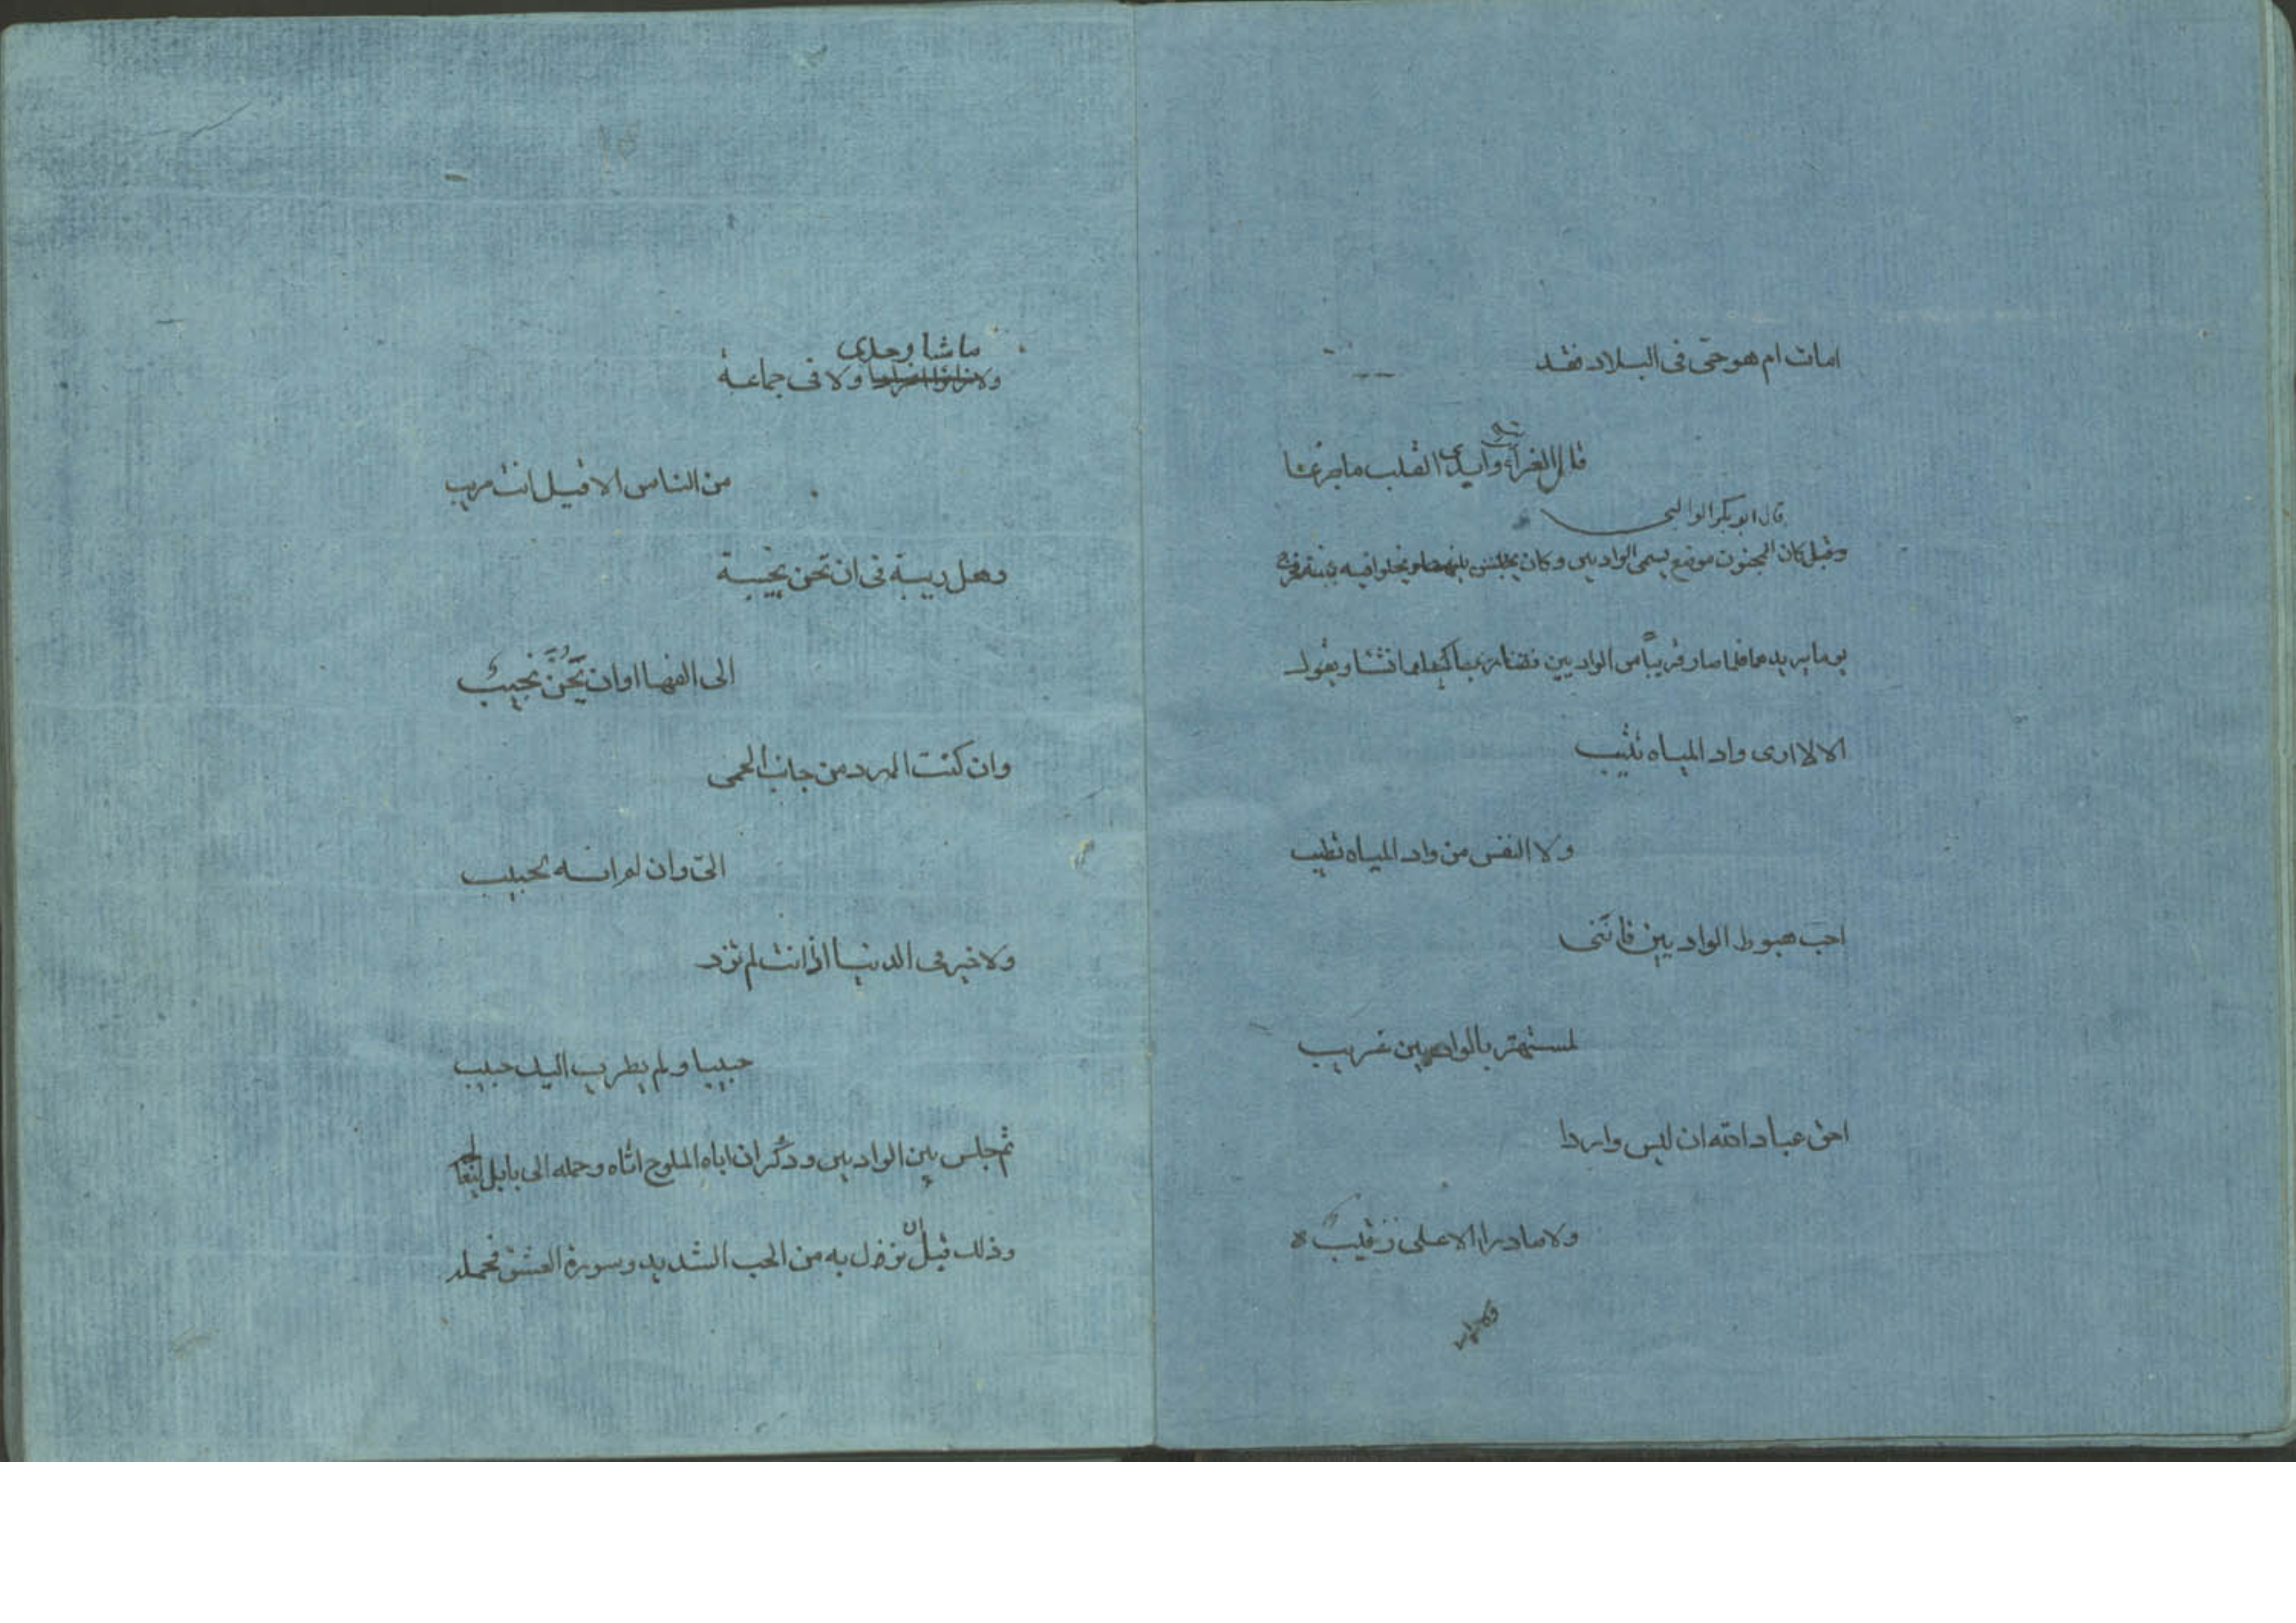 امات ام هو حيّ في البلاد فقد
قال الغراب وابدى القلب ما جزعا
قال ابو بكر الوالبي
وقيل كان المجنون موضع يسمى الواديين وكان يجلس بينهما ويخلوا فيه بنفسه فخرج
يوما يريدهما فلما صار قريباً من الواديين انشا ويقول
الا لا ارى واد المياه تثيب
ولا النفس من واد المياه تطيب
احب هبوط الواديين فانّنى
لمستهتر بالواديين غريب
احق عباد الله ان ليس واردا
ولا صادرا الا على رقيب
ولا زايرا
ماشيا وحدى
ولا ولا في جماعة
من الناس الا قيل انت مريب
وهل ريبة في ان تحن نجيبة
الى الفها او ان يَحِنَّ نجيب
وان كنت المرد من جانب الحمى
اليّ وان لم اته لحبيب
ولا خير في الدنيا اذا انت لم تزر
حبيبا ولم يطرب اليك حبيب
ثم جلس بين الواديين وذكر ان اباه الملوح اتاه وحمله الى بابل
وذلك قبل ان نزل به من الحب الشديد وسورة العشق فحمله